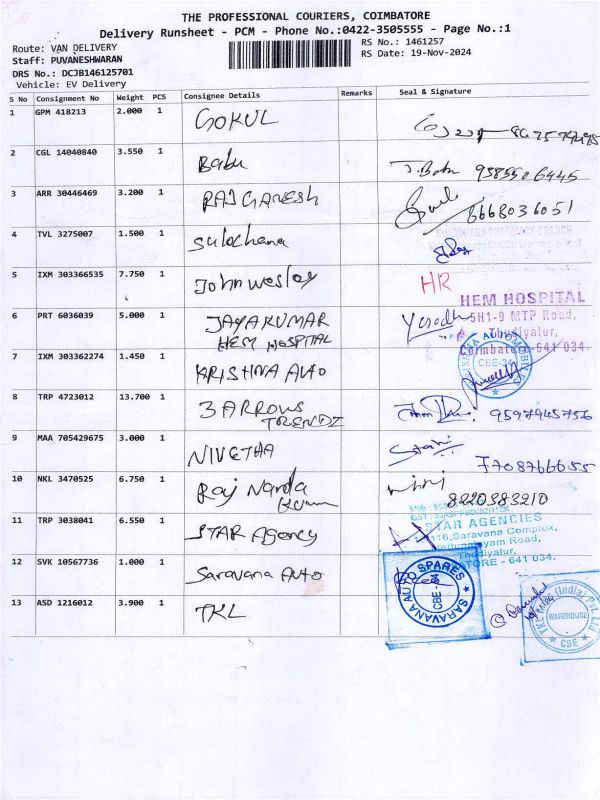 THE PROFESSIONAL COURIERS, COIMBATORE
Delivery Runsheet - PCM - Phone No.:0422-3505555 - Page No.:1
Route: VAN DELIVERY
RS No.: 1461257
Staff: PUVANESHWARAN
RS Date: 19-Nov-2024
DRS No.: DCJB146125701
Vehicle: EV Delivery
S No Consignment No Weight PCS Consignee Details Remarks Seal & Signature
1 GPM 418213 2.000 1 GOKUL
2 CGL 14040840 3.550 1 Babu J. Babu 9585506445
3 ARR 30446469 3.200 1 RAJ GANESH 6668036051
4 TVL 3275007 1.500 1 Sulochana
5 IXM 303366535 7.750 1 John wesley HR
HEM HOSPITAL
5H1-9 MTP Road,
Thudiyalur,
Coimbatore-641 034.
6 PRT 6036039 5.000 1 JAYAKUMAR
HEM HOSPITAL
7 IXM 303362274 1.450 1 KRISHNA AUTO
CBE-34
8 TRP 4723012 13.700 1 3 ARROWS
TRENDZ 9597945756
9 MAA 705429675 3.000 1 NIVETHA 7708766655
10 NKL 3470525 6.750 1 Raj Nanda
Kumar 8220383210
11 TRP 3038041 6.550 1 STAR Agency
STAR AGENCIES
116,Saravana Complex,
Thudiyalur,
12 SVK 10567736 1.000 1 Saravana Auto
SARAVANA AUTO SPARES
CBE-
13 ASD 1216012 3.900 1 TKL
TKL (India) Pvt. Ltd
WAREHOUSE
CBE